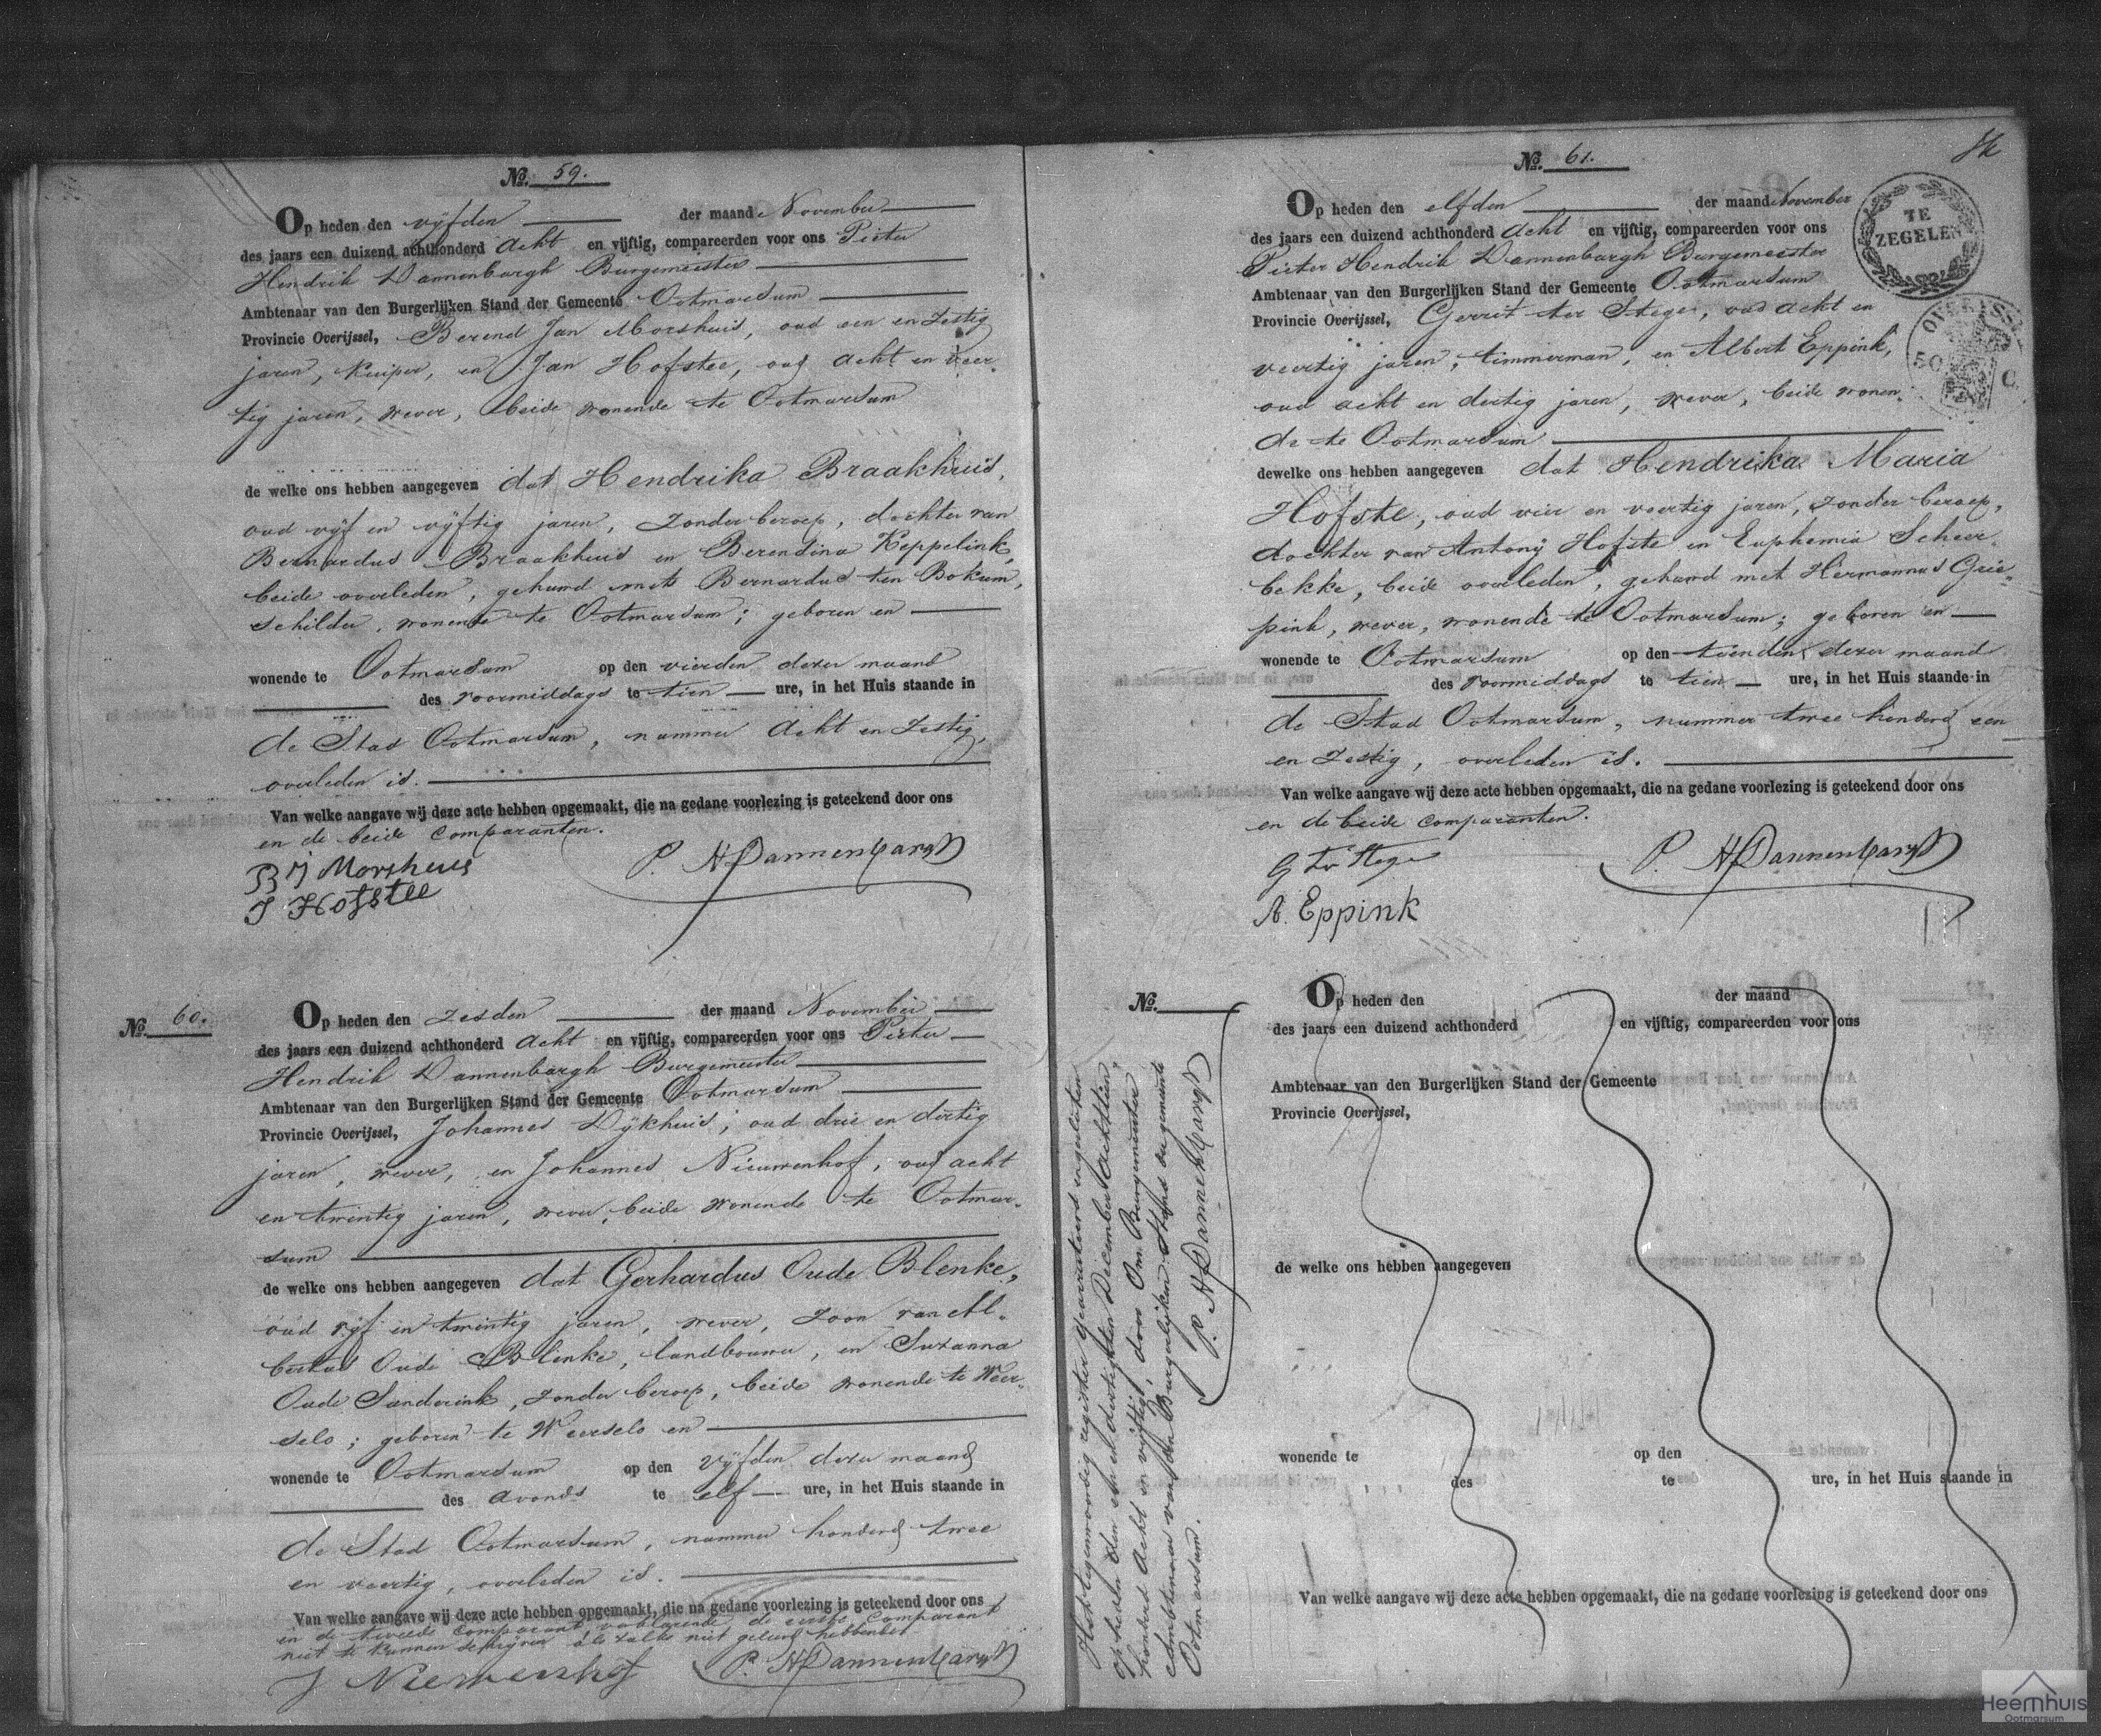 No. 59.
Op heden den vijfden der maand November
des jaars een duizend achthonderd acht en vijftig, compareerden voor ons Pieter
Hendrik Dannenbargh Burgemeester
Ambtenaar van den Burgerlijken Stand der Gemeente Ootmarsum
Provincie Overijssel, Berend Jan Morshuis, oud een en zestig
jaren, kuiper, en Jan Hofstee, oud acht en veer-
tig jaren, wever, beide wonende te Ootmarsum
de welke ons hebben aangegeven dat Hendrika Braakhuis,
oud vijf en vijftig jaren, zonder beroep, dochter van
Bernardus Braakhuis en Berendina Keppelink,
beide overleden, gehuwd met Bernardus ten Bokum,
schilder, wonende te Ootmarsum; geboren en
wonende te Ootmarsum op den vierden dezer maand
des voormiddags te tien ure, in het Huis staande in
de Stad Ootmarsum, nummer acht en zestig,
overleden is.
Van welke aangave wij deze acte hebben opgemaakt, die na gedane voorlezing is geteekend door ons
en de beide comparanten.
BJ Morshuis P. H Dannenbargh
J Hofstee
No. 60.
Op heden den zesden der maand November
des jaars een duizend achthonderd acht en vijftig, compareerden voor ons Pieter
Hendrik Dannenbargh Burgemeester
Ambtenaar van den Burgerlijken Stand der Gemeente Ootmarsum
Provincie Overijssel, Johannes Dijkhuis, oud drie en dertig
jaren, wever, en Johannes Nieuwenhof, oud acht
en twintig jaren, wever, beide wonende te Ootmar-
sum
de welke ons hebben aangegeven dat Gerhardus Oude Blenke,
oud vijf en twintig jaren, wever, zoon van Al-
bertus Oude Blenke, landbouwer, en Suzanna
Oude Sanderink, zonder beroep, beide wonende te Weer-
selo; geboren te Weerselo en
wonende te Ootmarsum op den vijfden dezer maand
des avonds te elf ure, in het Huis staande in
de Stad Ootmarsum, nummer honderd twee
en veertig, overleden is.
Van welke aangave wij deze acte hebben opgemaakt, die na gedane voorlezing is geteekend door ons
en de tweede comparant, verklarende de eerste comparant
niet te kunnen schrijven als zulks niet geleerd hebbende.
J Niewenhof P. H Dannenbargh
No. 61.
Op heden den elfden der maand November
des jaars een duizend achthonderd acht en vijftig, compareerden voor ons
Pieter Hendrik Dannenbargh Burgemeester
Ambtenaar van den Burgerlijken Stand der Gemeente Ootmarsum
Provincie Overijssel, Gerrit ter Stege, oud acht en
veertig jaren, timmerman, en Albert Eppink,
oud acht en dertig jaren, wever, beide wonen-
de te Ootmarsum
dewelke ons hebben aangegeven dat Hendrika Maria
Hofste, oud vier en veertig jaren, zonder beroep,
dochter van Antonij Hofste en Euphemia Scheer-
bekke, beide overleden, gehuwd met Hermannus Grie-
pink, wever, wonende te Ootmarsum; geboren en
wonende te Ootmarsum op den tienden dezer maand
des voormiddags te tien ure, in het Huis staande in
de Stad Ootmarsum, nummer twee honderd een
en zestig, overleden is.
Van welke aangave wij deze acte hebben opgemaakt, die na gedane voorlezing is geteekend door ons
en de beide comparanten.
G ter Stege P. H Dannenbargh
A. Eppink
TE
ZEGELEN
OVERYSSEL
50 C
No.
Op heden den der maand
des jaars een duizend achthonderd en vijftig, compareerden voor ons
Ambtenaar van den Burgerlijken Stand der Gemeente
Provincie Overijssel,
de welke ons hebben aangegeven
wonende te op den
des te ure, in het Huis staande in
Van welke aangave wij deze acte hebben opgemaakt, die na gedane voorlezing is geteekend door ons
Het tegenwoordig register gearresteerd en gesloten
op heden den een en dertigsten December achttien
honderd acht en vijftig, door Ons Burgemeester
Ambtenaar van den Burgerlijken Stand der gemeente
Ootmarsum.
P. H Dannenbargh
Heemhuis
Ootmarsum